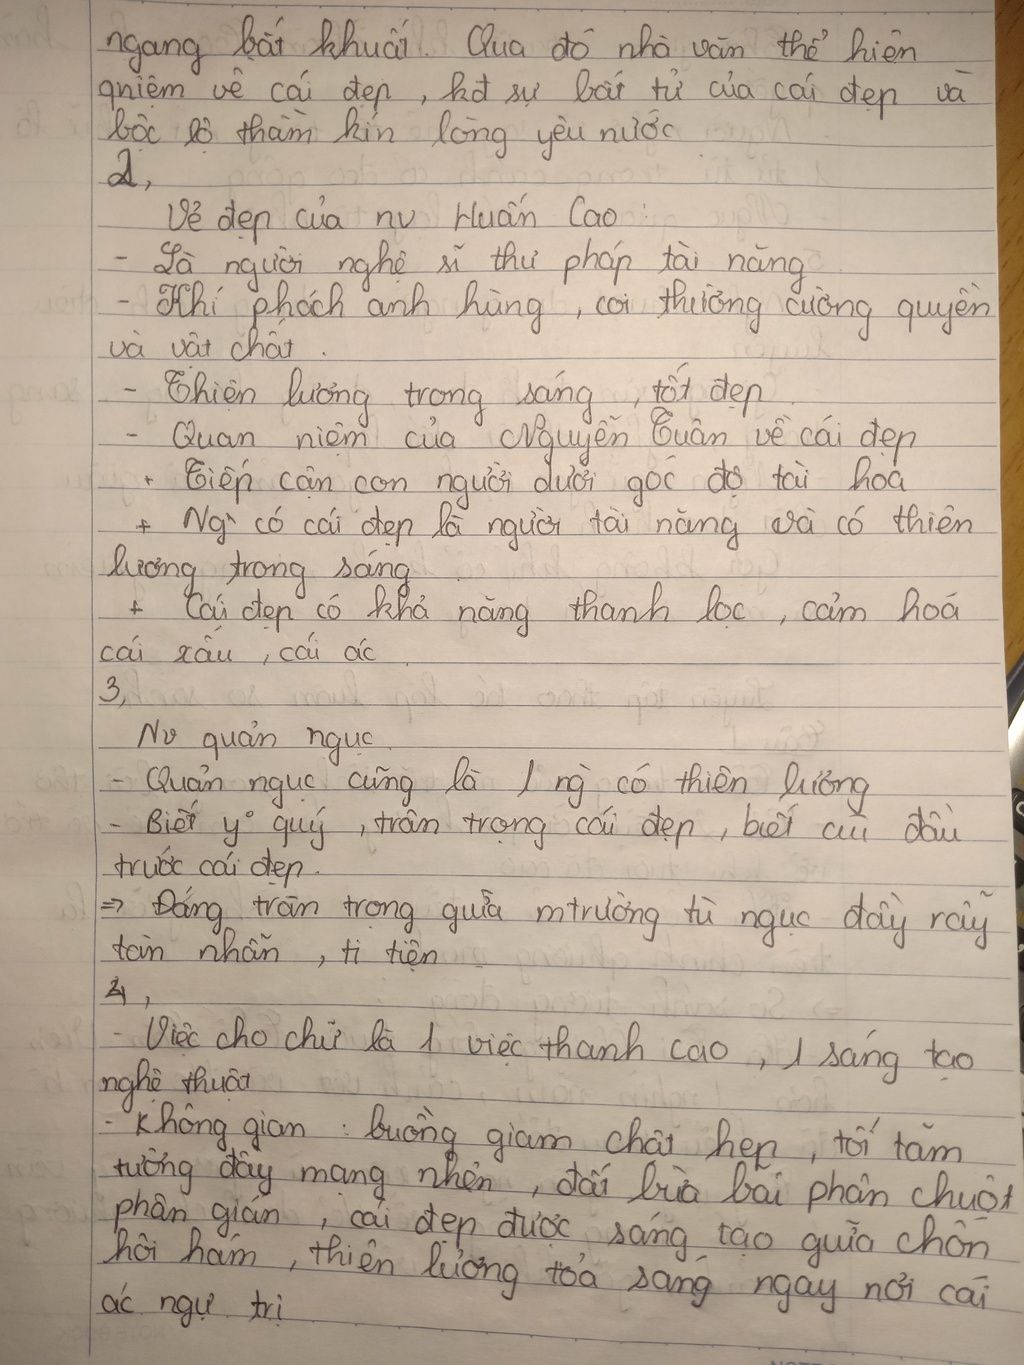 ngang bất khuất. Qua đó nhà văn thể hiện
qniệm về cái đẹp, kđ sự bất tử của cái đẹp và
bộc lộ thầm kín lòng yêu nước
2,
Vẻ đẹp của nv Huấn Cao:
- Là người nghệ sĩ thư pháp tài năng
- Khí phách anh hùng, coi thường cường quyền
và vật chất.
- Thiện lương trong sáng, tốt đẹp
- Quan niệm của Nguyễn Tuân về cái đẹp
+ Tiếp cận con người dưới góc độ tài hoa
+ Ng` có cái đẹp là người tài năng và có thiên
lương trong sáng
+ Cái đẹp có khả năng thanh lọc, cảm hoá
cái xấu, cái ác
3,
Nv quản ngục
- Quản ngục cũng là 1 ng` có thiên lương
- Biết y° quý, trân trọng cái đẹp, biết cúi đầu
trước cái đẹp.
=> Đáng trân trọng giữa mtrường tù ngục đầy rẫy
tàn nhẫn, ti tiện
4,
- Việc cho chữ là 1 việc thanh cao, 1 sáng tạo
nghệ thuật
- Không gian: buồng giam chật hẹp, tối tăm
tường đầy mạng nhện, đất bừa bãi phân chuột
phân gián, cái đẹp được sáng tạo giữa chốn
hôi hám, thiên lương tỏa sáng ngay nơi cái
ác ngự trị